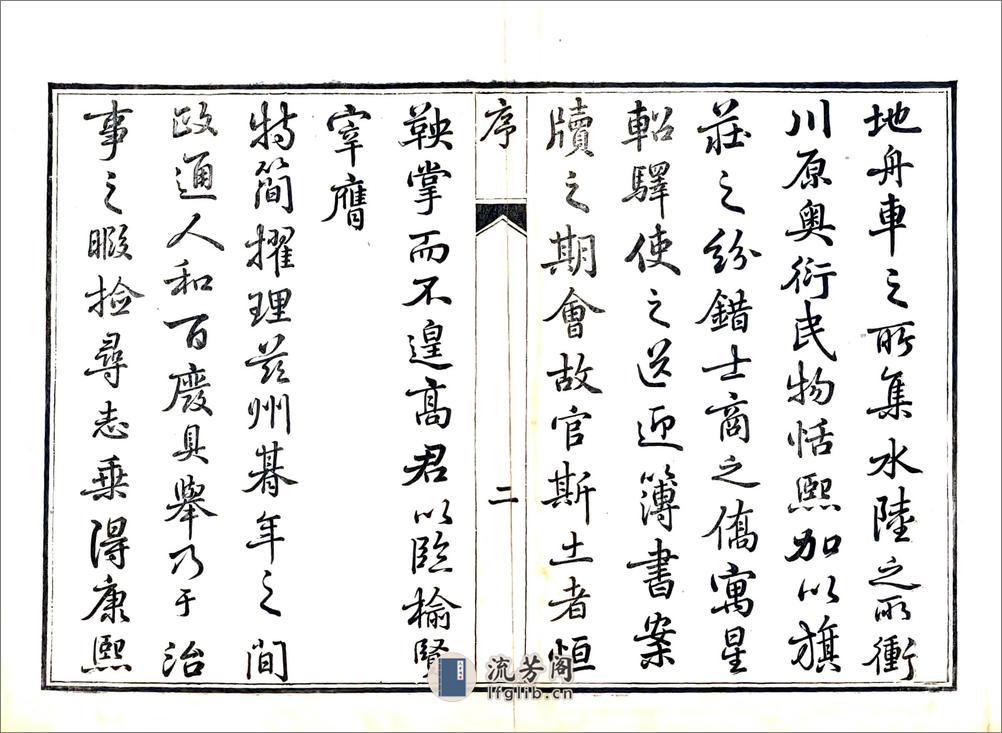 地舟車之所集水陸之所衝
川原奧衍民物恬熙加以旗
莊之紛錯士商之僑寓星
軺驛使之送迎簿書案
牘之期會故官斯土者恒
序
二
鞅掌而不遑高君以臨榆賢
宰膺
特簡擢理茲州朞年之間
政通人和百廢具舉乃于治
事之暇撿尋志乘得康熙
流芳阁
lfglib.cn